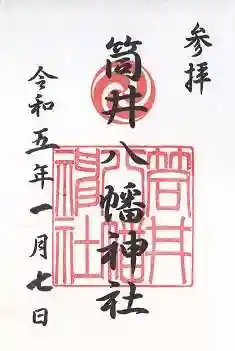 参拝
筒井八幡神社
令和五年一月七日
筒井
八幡
神社